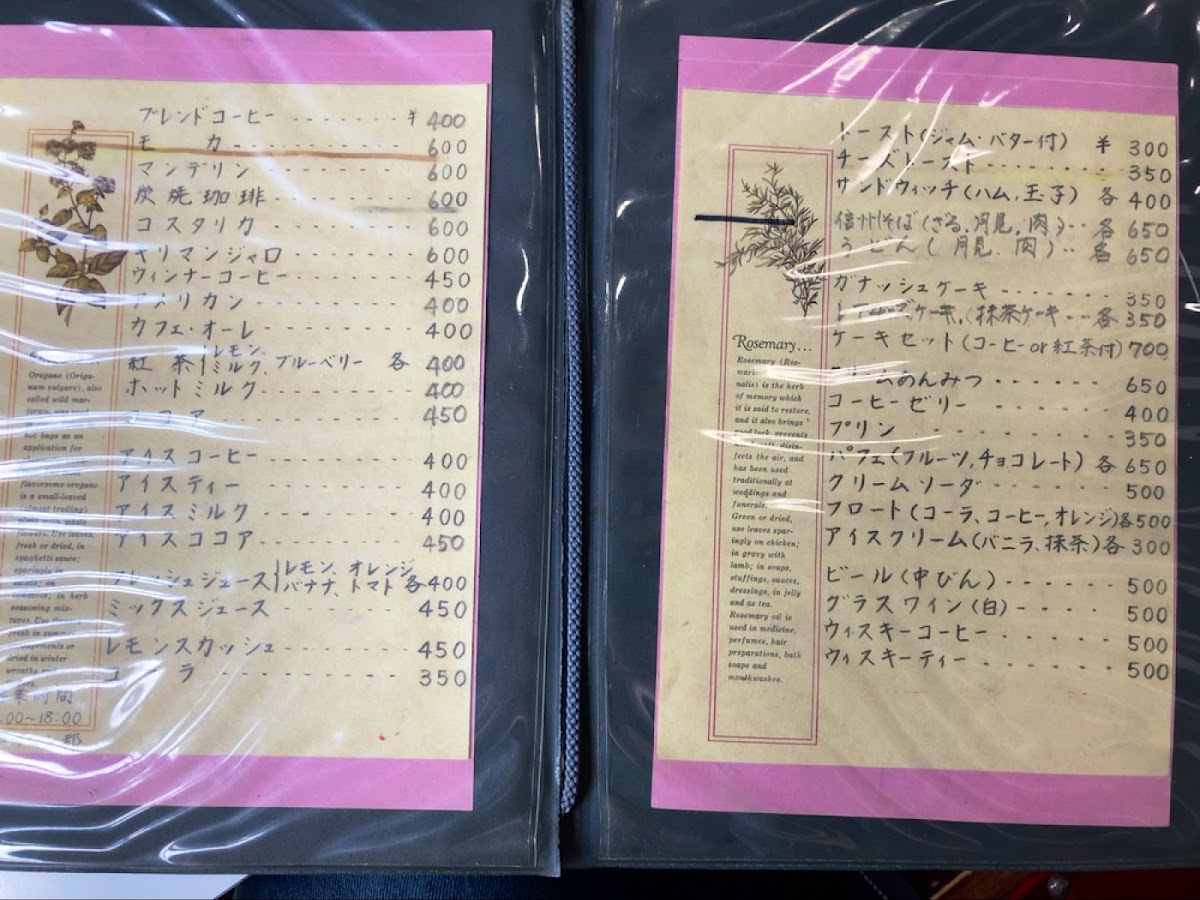 ブレンドコーヒー ------- ¥ 400
モ カ ---------- 600
マンデリン ---------- 600
炭焼珈琲 --------- 600
コスタリカ --------- 600
キリマンジャロ --------- 600
ウィンナーコーヒー -------- 450
アメリカン --------- 400
カフェ・オーレ --------- 400
紅 茶 レモン、ミルク、ブルーベリー 各 400
ホットミルク --------- 400
ココア ---------- 450
アイスコーヒー --------- 400
アイスティー --------- 400
アイスミルク --------- 400
アイスココア --------- 450
フレッシュジュース レモン、オレンジ
バナナ、トマト 各400
ミックスジュース --------- 450
レモンスカッシュ -------- 450
コ ラ ---------- 350
業時間
:00~18:00
Oregano (Origa-
num vulgare), also
called wild mar-
hot bags as an
application for
flavorsome oregano
is a small-leaved
(almost trailing)
flowers. Use leaves,
fresh or dried, in
spaghetti sauce;
sparingly in
in herb
seasoning mix-
dried in winter
トースト(ジャム・バター付) ¥ 300
チーズトースト ------- 350
サンドウィッチ(ハム,玉子) 各 400
信州そば(ざる,月見,肉)-- 各 650
うどん(月見、肉)-- 各 650
ガナッシュケーキ ------- 350
ケーキ,(抹茶ケーキ--- 各350
ケーキセット(コーヒーor紅茶付)700
クリームあんみつ ------ 650
コーヒーゼリー ------- 400
プリン --------- 350
パフェ(フルーツ,チョコレート) 各 650
クリームソーダ ------ 500
フロート(コーラ、コーヒー,オレンジ)各500
アイスクリーム(バニラ、抹茶)各 300
ビール(中びん)------ 500
グラスワイン(白)----- 500
ウィスキーコーヒー ----- 500
ウィスキーティー ------ 500
Rosemary...
Rosemary (Ros-
nalis) is the herb
of memory which
it is said to restore,
and it also brings
good luck, prevents
disin-
fects the air, and
has been used
traditionally at
weddings and
funerals.
Green or dried,
use leaves spar-
ingly on chicken;
in gravy with
lamb; in soups,
stuffings, sauces,
dressings, in jelly
and as tea.
Rosemary oil is
used in medicine,
perfumes, hair
preparations, bath
soaps and
mouthwashes.